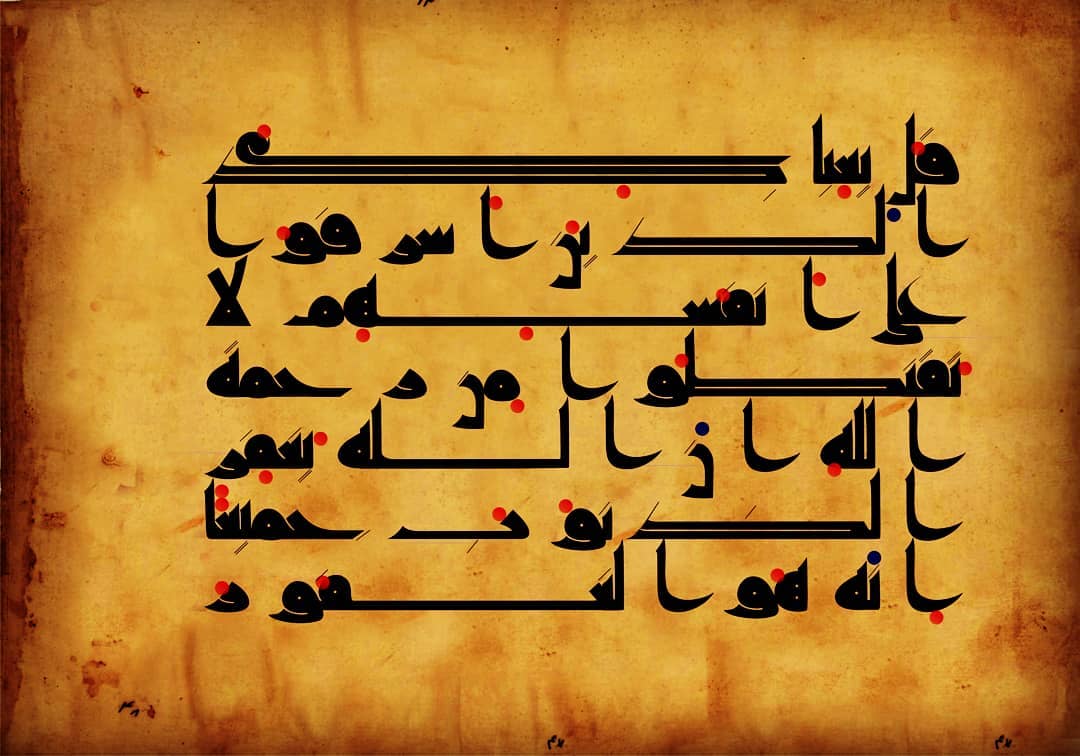 قل يعبادي
الذين اسرفوا
على انفسهم لا
تقنطوا من رحمة
الله ان الله يغفر
الذنوب جميعا
انه هو الغفور